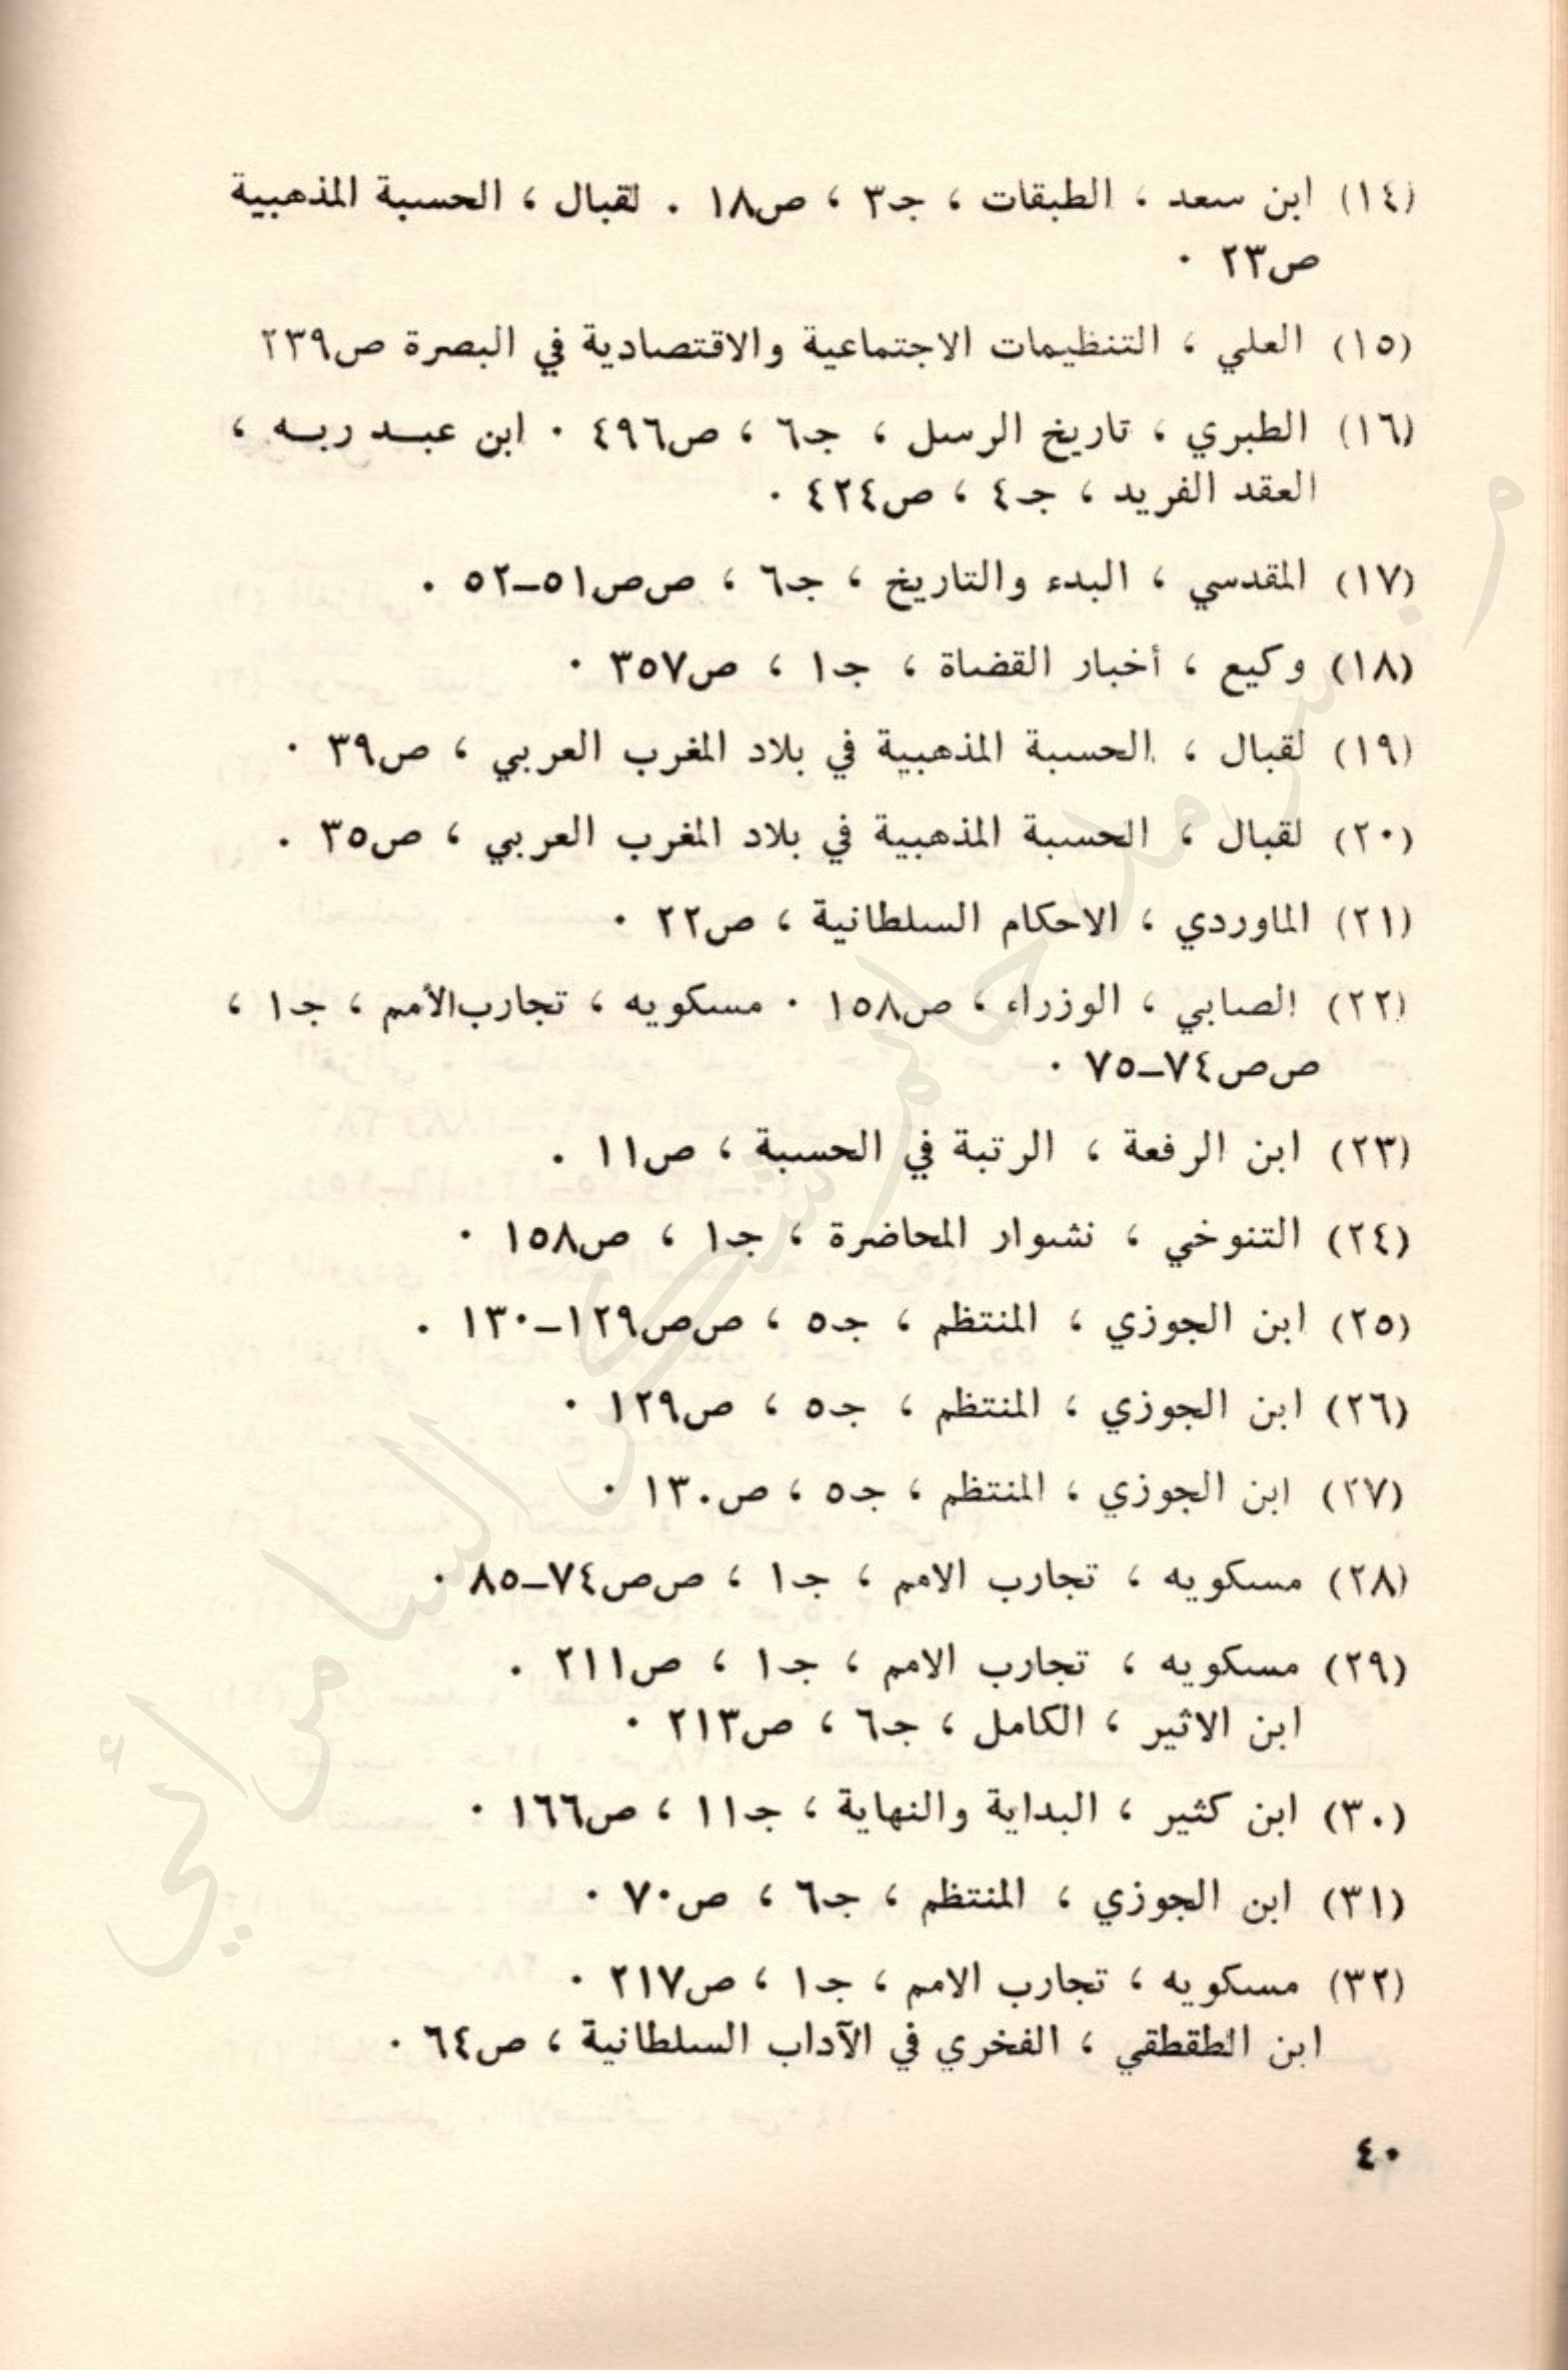 (١٤) ابن سعد ، الطبقات ، جـ٣ ، ص١٨ . لقبال ، الحسبة المذهبية
ص٢٣ .
(١٥) العلي ، التنظيمات الاجتماعية والاقتصادية في البصرة ص٢٣٩
(١٦) الطبري ، تاريخ الرسل ، جـ٦ ، ص٤٩٦ . ابن عبـد ربـه ،
العقد الفريد ، جـ٤ ، ص٤٢٤ .
(١٧) المقدسي ، البدء والتاريخ ، جـ٦ ، صص٥١–٥٢ .
(١٨) وكيع ، أخبار القضاة ، جـ١ ، ص٣٥٧ .
(١٩) لقبال ، الحسبة المذهبية في بلاد المغرب العربي ، ص٣٩ .
(٢٠) لقبال ، الحسبة المذهبية في بلاد المغرب العربي ، ص٣٥ .
(٢١) الماوردي ، الاحكام السلطانية ، ص٢٢ .
(٢٢) الصابي ، الوزراء ، ص١٥٨ . مسكويه ، تجارب الأمم ، جـ١ ،
صص٧٤–٧٥ .
(٢٣) ابن الرفعة ، الرتبة في الحسبة ، ص١١ .
(٢٤) التنوخي ، نشوار المحاضرة ، جـ١ ، ص١٥٨ .
(٢٥) ابن الجوزي ، المنتظم ، جـ٥ ، صص١٢٩–١٣٠ .
(٢٦) ابن الجوزي ، المنتظم ، جـ٥ ، ص١٢٩ .
(٢٧) ابن الجوزي ، المنتظم ، جـ٥ ، ص١٣٠ .
(٢٨) مسكويه ، تجارب الامم ، جـ١ ، صص٧٤–٨٥ .
(٢٩) مسكويه ، تجارب الامم ، جـ١ ، ص٢١١ .
ابن الاثير ، الكامل ، جـ٦ ، ص٢١٣ .
(٣٠) ابن كثير ، البداية والنهاية ، جـ١١ ، ص١٦٦ .
(٣١) ابن الجوزي ، المنتظم ، جـ٦ ، ص٧٠ .
(٣٢) مسكويه ، تجارب الامم ، جـ١ ، ص٢١٧ .
ابن الطقطقي ، الفخري في الآداب السلطانية ، ص٦٤ .
٤٠